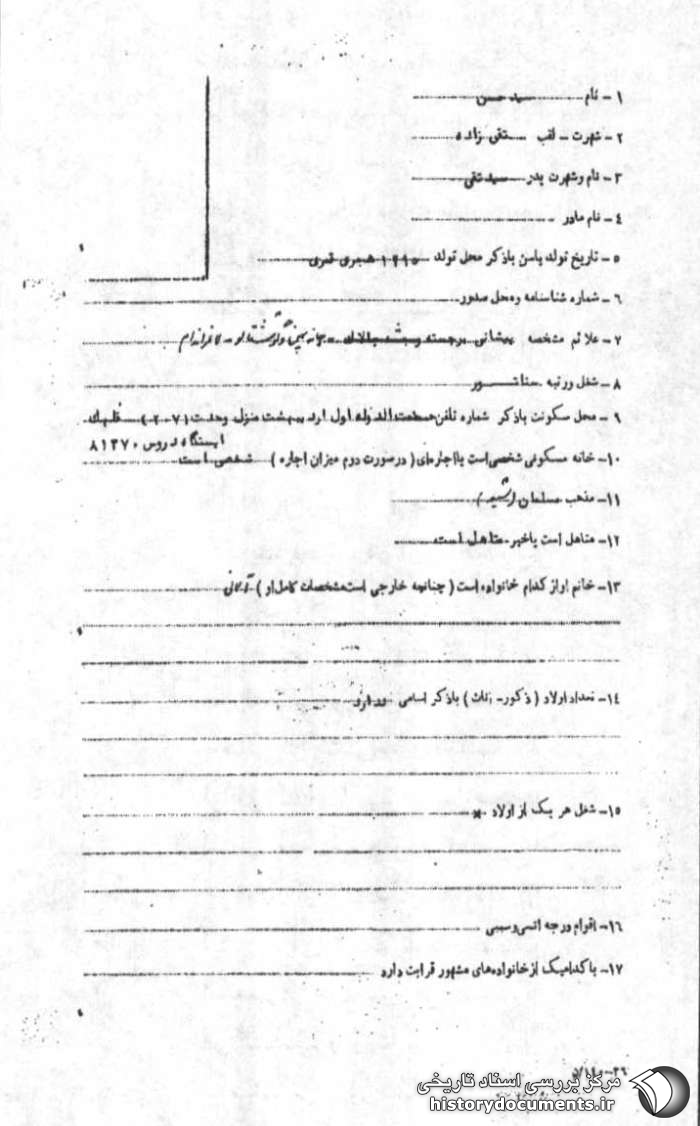 ۱- نام سید حسن
۲- شهرت - لقب تقی زاده
۳- نام و شهرت پدر سید تقی
۴- نام مادر
۵- تاریخ تولد یا سن باذکر محل تولد ۱۲۹۵ هجری قمری
۶- شماره شناسنامه و محل صدور
۷- علائم مشخصه پیشانی برجسته
۸- شغل و رتبه سناتور
۹- محل سکونت باذکر شماره تلفن حشمت الدوله اول اردیبهشت منزل وحدت (۷-۲۰۲) قلهک
ایستگاه دروس ۸۱۳۷۰
۱۰- خانه مسکونی شخصی است یا اجاره‌ای ( در صورت دوم میزان اجاره ) شخصی است
۱۱- مذهب مسلمان (شیعه)
۱۲- متاهل است یاخیر متاهل است
۱۳- خانم او از کدام خانواده است ( چنانچه خارجی است مشخصات کامل او ) آلمانی
۱۴- تعداد اولاد ( ذکور - اناث ) باذکر اسامی ندارد
۱۵- شغل هر یک از اولاد ×
۱۶- اقوام درجه ۱ نسبی و سببی
۱۷- با کدامیک از خانواده‌های مشهور قرابت دارد
مرکز بررسی اسناد تاریخی
historydocuments.ir